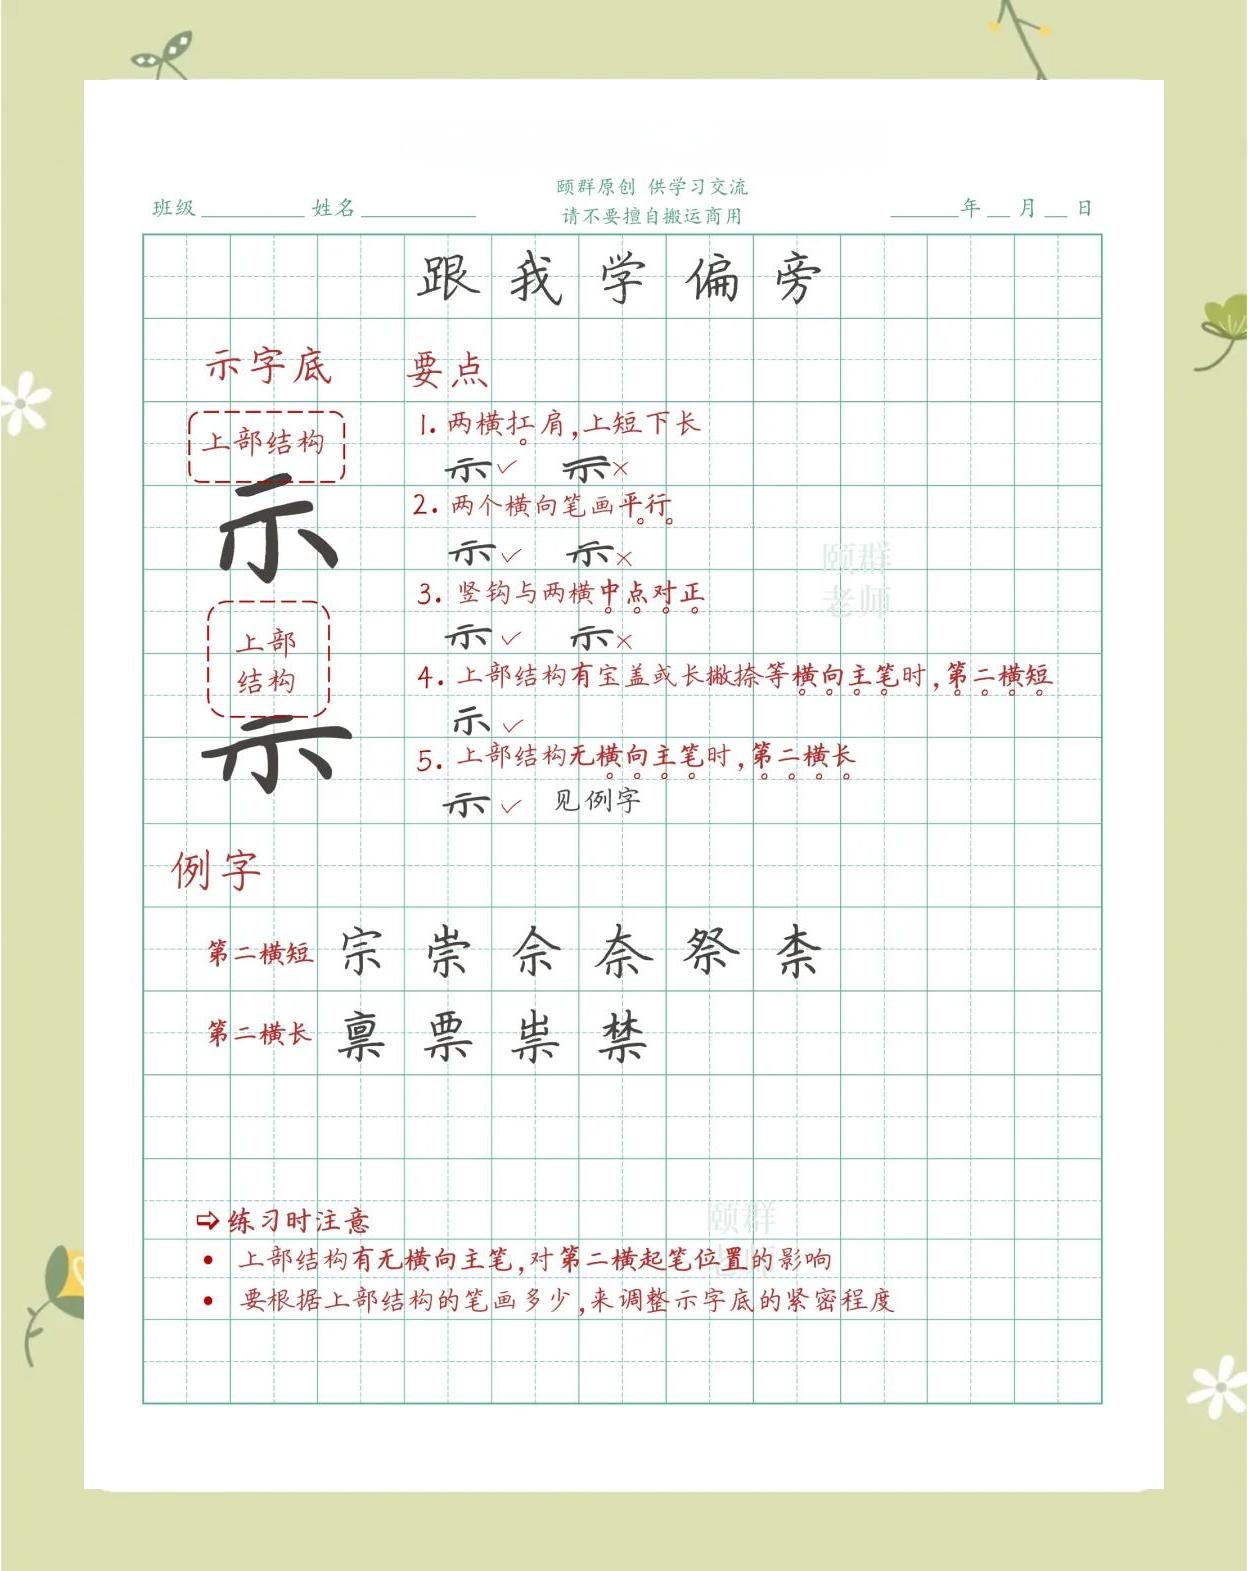 颐群原创 供学习交流
班级 姓名 请不要擅自搬运商用 年 月 日
跟我学偏旁
示字底 要点
上部结构
示
上部
结构
示
1. 两横扛肩,上短下长
示✓ 示×
2. 两个横向笔画平行
示✓ 示×
3. 竖钩与两横中点对正
示✓ 示×
4. 上部结构有宝盖或长撇捺等横向主笔时,第二横短
示✓
5. 上部结构无横向主笔时,第二横长
示✓ 见例字
颐群
老师
例字
第二横短 宗 崇 佘 奈 祭 柰
第二横长 禀 票 祟 禁
⇨练习时注意
• 上部结构有无横向主笔,对第二横起笔位置的影响
• 要根据上部结构的笔画多少,来调整示字底的紧密程度
颐群
老师